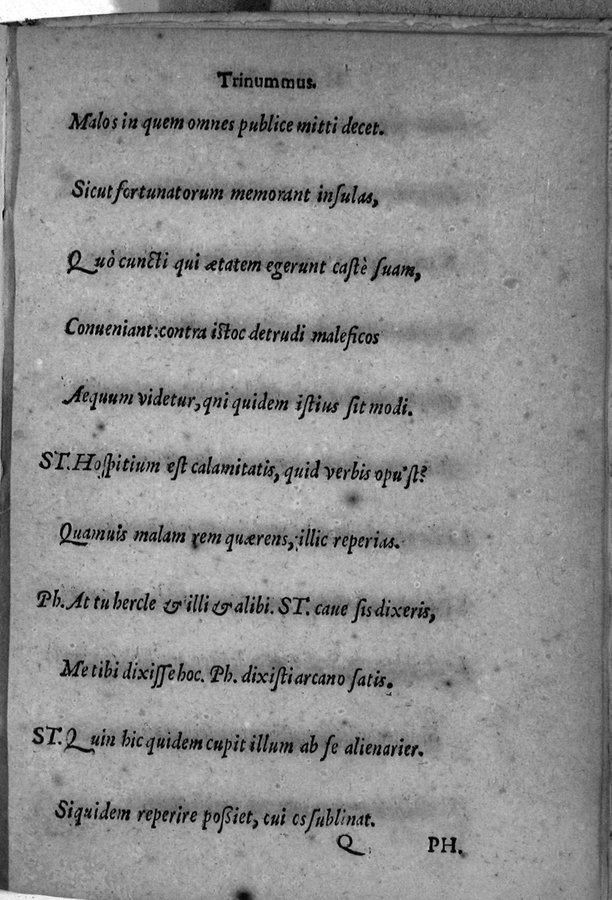 Trinummus.
Malos in quem omnes publice mitti decet.
Sicut fortunatorum memorant inſulas,
Quò cuncti qui ætatem egerunt caſtè ſuam,
Conueniant: contra iſtoc detrudi maleficos
Aequum videtur, qni quidem iſtius ſit modi.
ST. Hoſpitium eſt calamitatis, quid verbis opu'ſt?
Quamuis malam rem quærens, illic reperias.
Ph. At tu hercle & illi & alibi. ST. caue ſis dixeris,
Me tibi dixiſſe hoc. Ph. dixiſti arcano ſatis.
ST. Quin hic quidem cupit illum ab ſe alienarier.
Siquidem reperire poſsiet, cui os ſublinat.
Q PH.